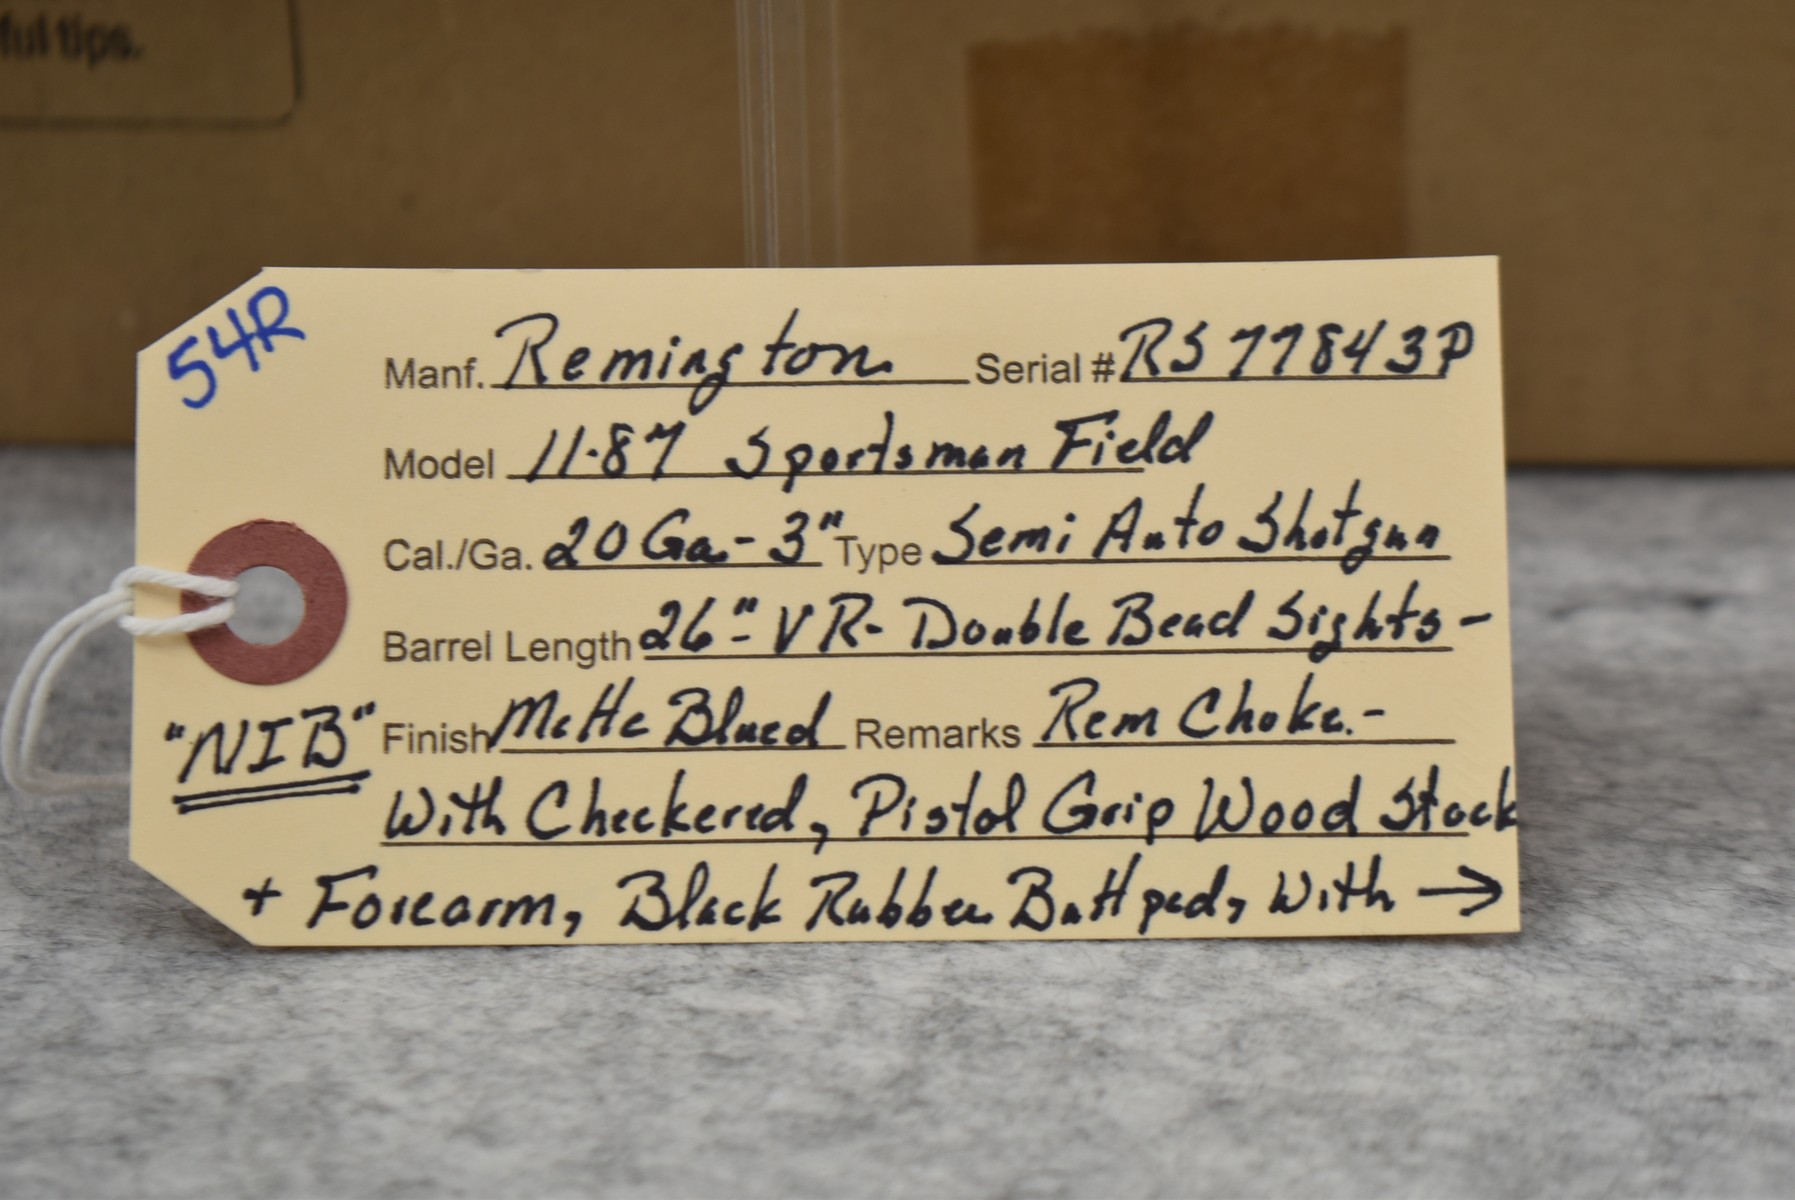 ful tips.
54R
Manf. Remington Serial # RS77843P
Model 11-87 Sportsman Field
Cal./Ga. 20 Ga.- 3" Type Semi Auto Shotgun
Barrel Length 26"- VR- Double Bead Sights -
"NIB" Finish Matte Blued Remarks Rem Choke.-
With Checkered, Pistol Grip Wood Stock
+ Forearm, Black Rubber Buttpad, With →